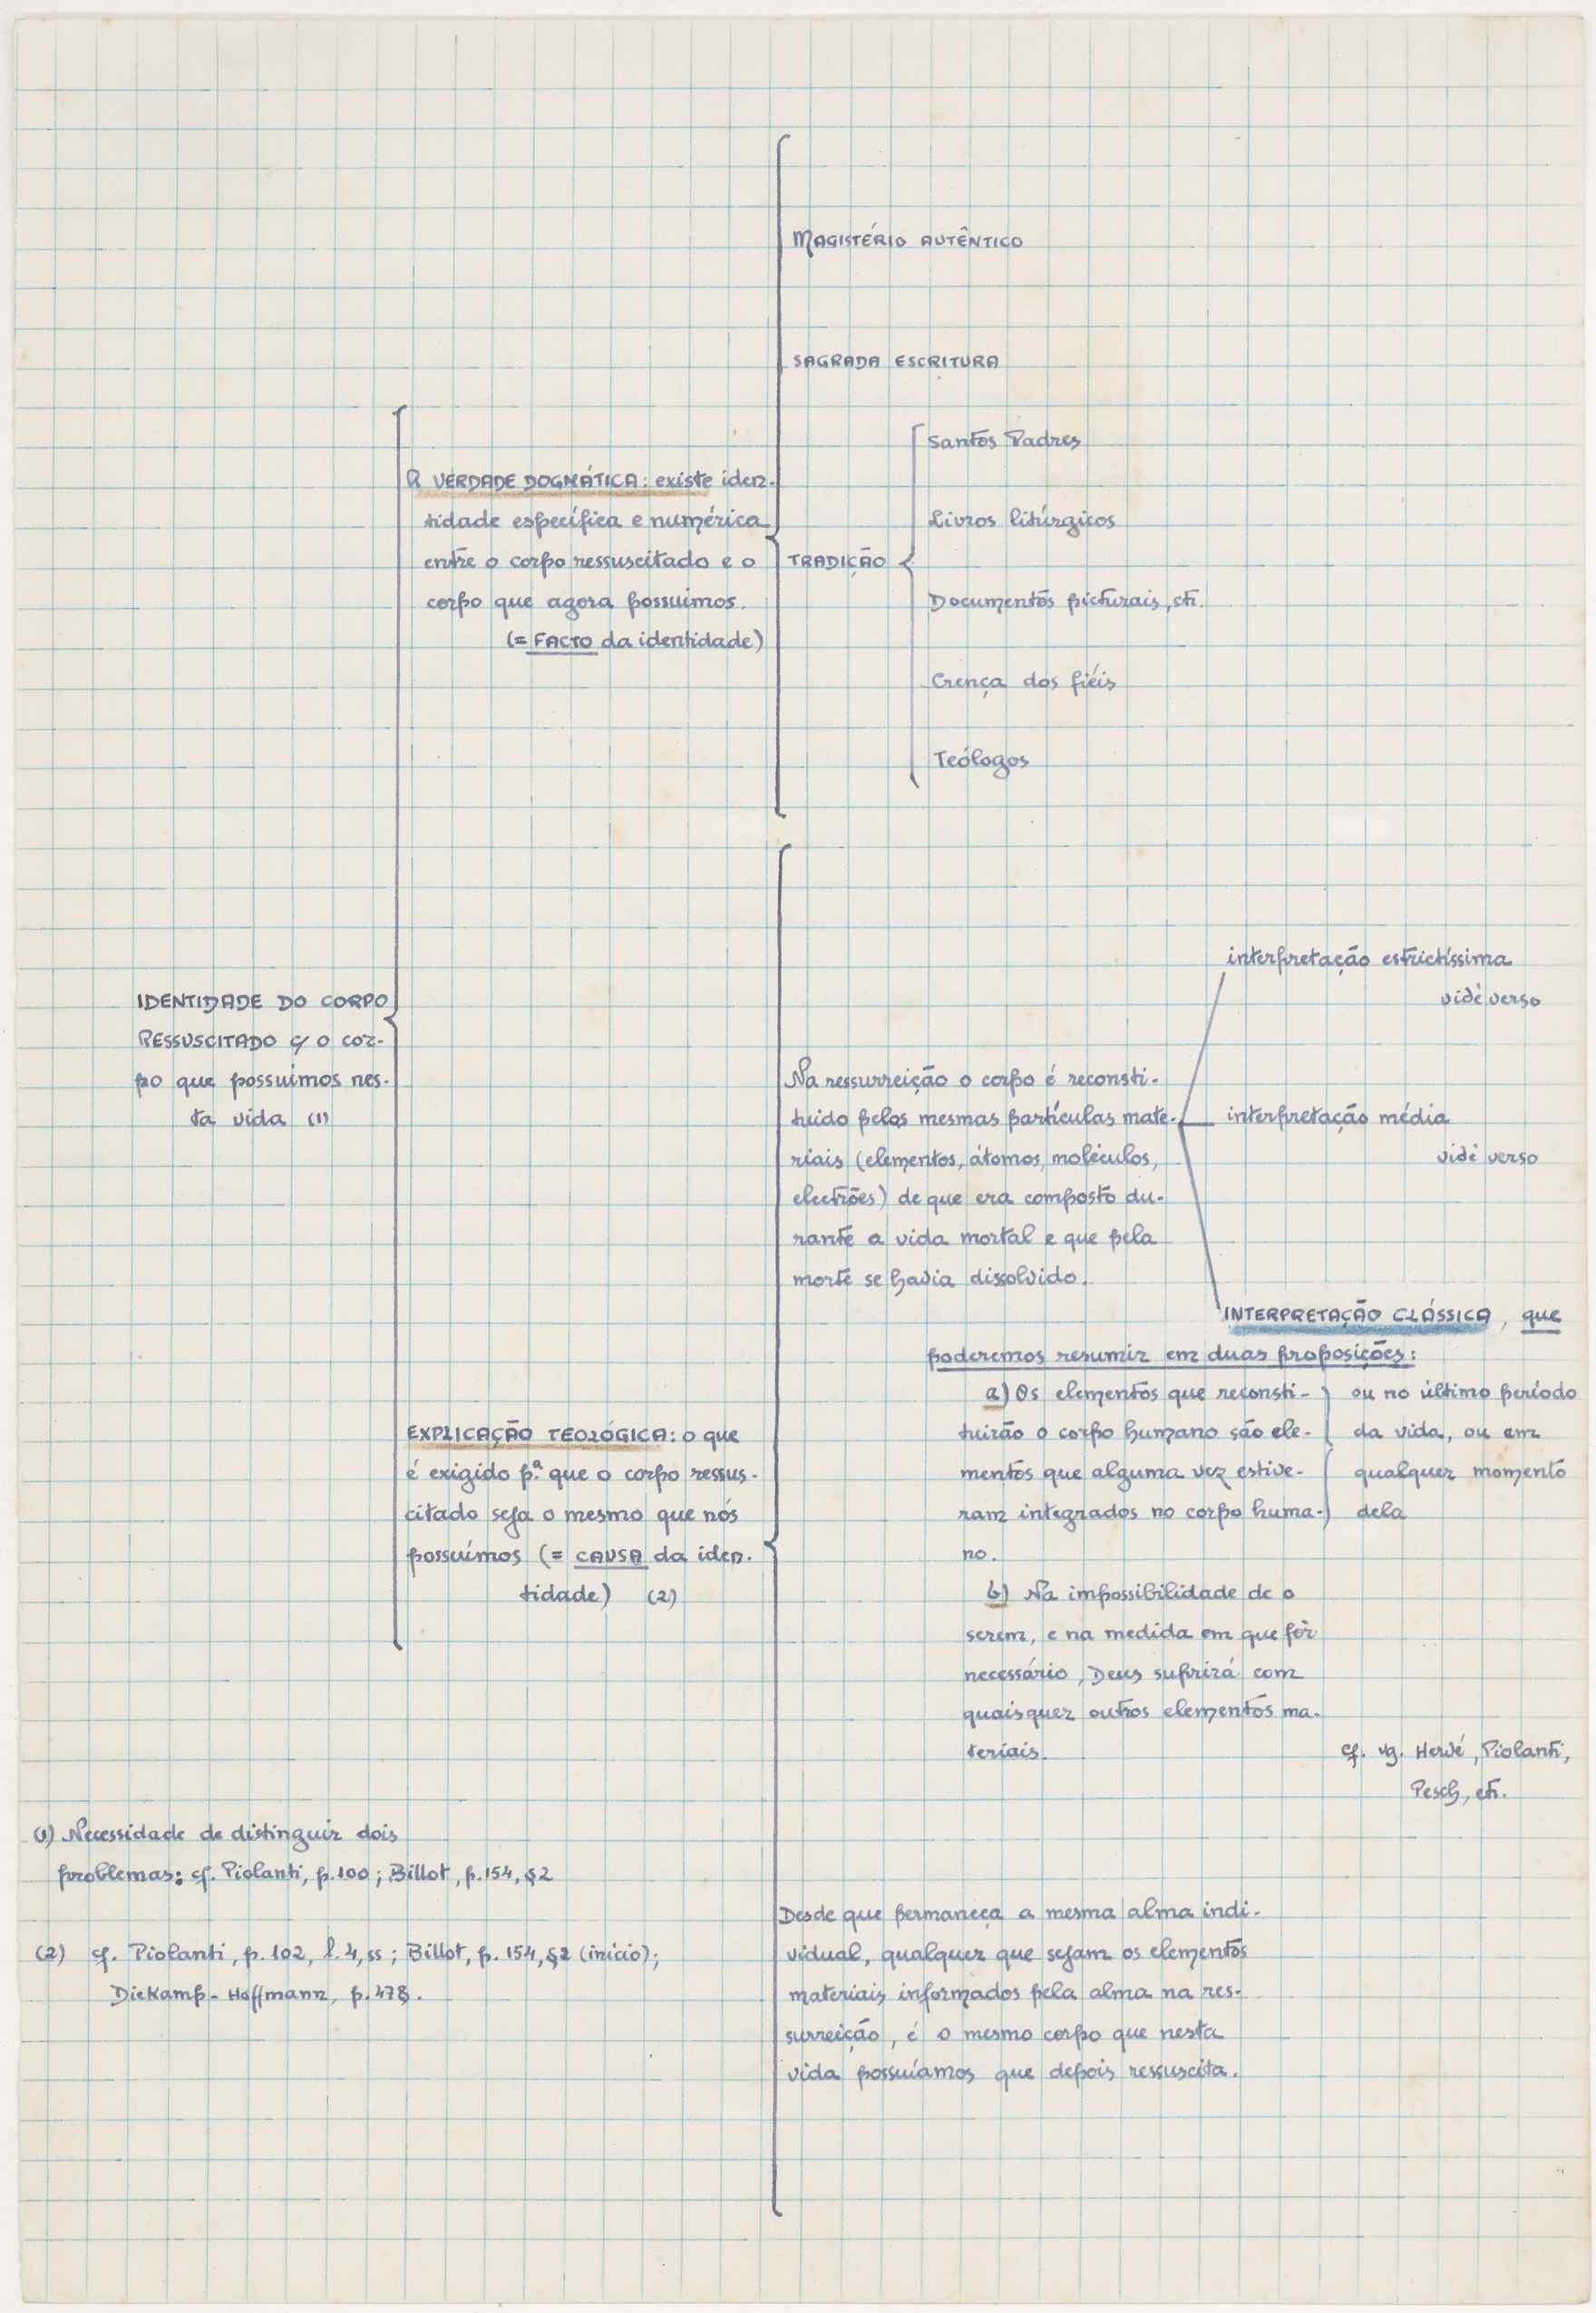 IDENTIDADE DO CORPO
RESSUSCITADO c/ o cor-
po que possuímos nes-
ta vida (1)
A VERDADE DOGMÁTICA: existe iden-
tidade específica e numérica
entre o corpo ressuscitado e o
corpo que agora possuimos.
(= FACTO da identidade)
MAGISTÉRIO AUTÊNTICO
SAGRADA ESCRITURA
TRADIÇÃO
Santos Padres
Livros litúrgicos
Documentos picturais, etc.
Crença dos fiéis
Teólogos
EXPLICAÇÃO TEOLÓGICA: o que
é exigido pª. que o corpo ressus-
citado seja o mesmo que nós
possuímos (= CAUSA da iden-
tidade) (2)
Na ressurreição o corpo é reconsti-
tuido pelas mesmas partículas mate-
riais (elementos, átomos, moléculos,
electrões) de que era composto du-
rante a vida mortal e que pela
morte se havia dissolvido.
interpretação estrictíssima
vidè verso
interpretação média
vidè verso
INTERPRETAÇÃO CLÁSSICA, que
poderemos resumir em duas proposições:
a) Os elementos que reconsti-
tuirão o corpo humano são ele-
mentos que alguma vez estive-
ram integrados no corpo huma-
no.
ou no último período
da vida, ou em
qualquer momento
dela
b) Na impossibilidade de o
serem, e na medida em que fôr
necessário, Deus suprirá com
quaisquer outros elementos ma-
teriais.
cf. vg. Hervé, Piolanti,
Pesch, etc.
Desde que permaneça a mesma alma indi-
vidual, qualquer que sejam os elementos
materiais informados pela alma na res-
surreição, é o mesmo corpo que nesta
vida possuíamos que depois ressuscita.
(1) Necessidade de distinguir dois
problemas: cf. Piolanti, p. 100; Billot, p. 154, §2
(2) cf. Piolanti, p. 102, l. 4, ss; Billot, p. 154, §2 (início);
Diekamp - Hoffmann, p. 478.